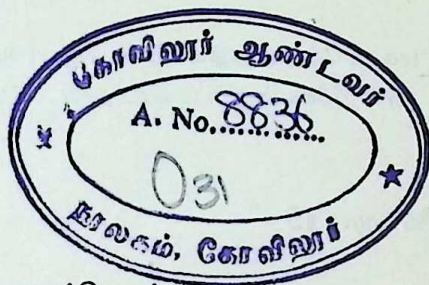 கோவிலூர் ஆண்டவர்
A. No. 8836
O31
நூலகம், கோவிலூர்